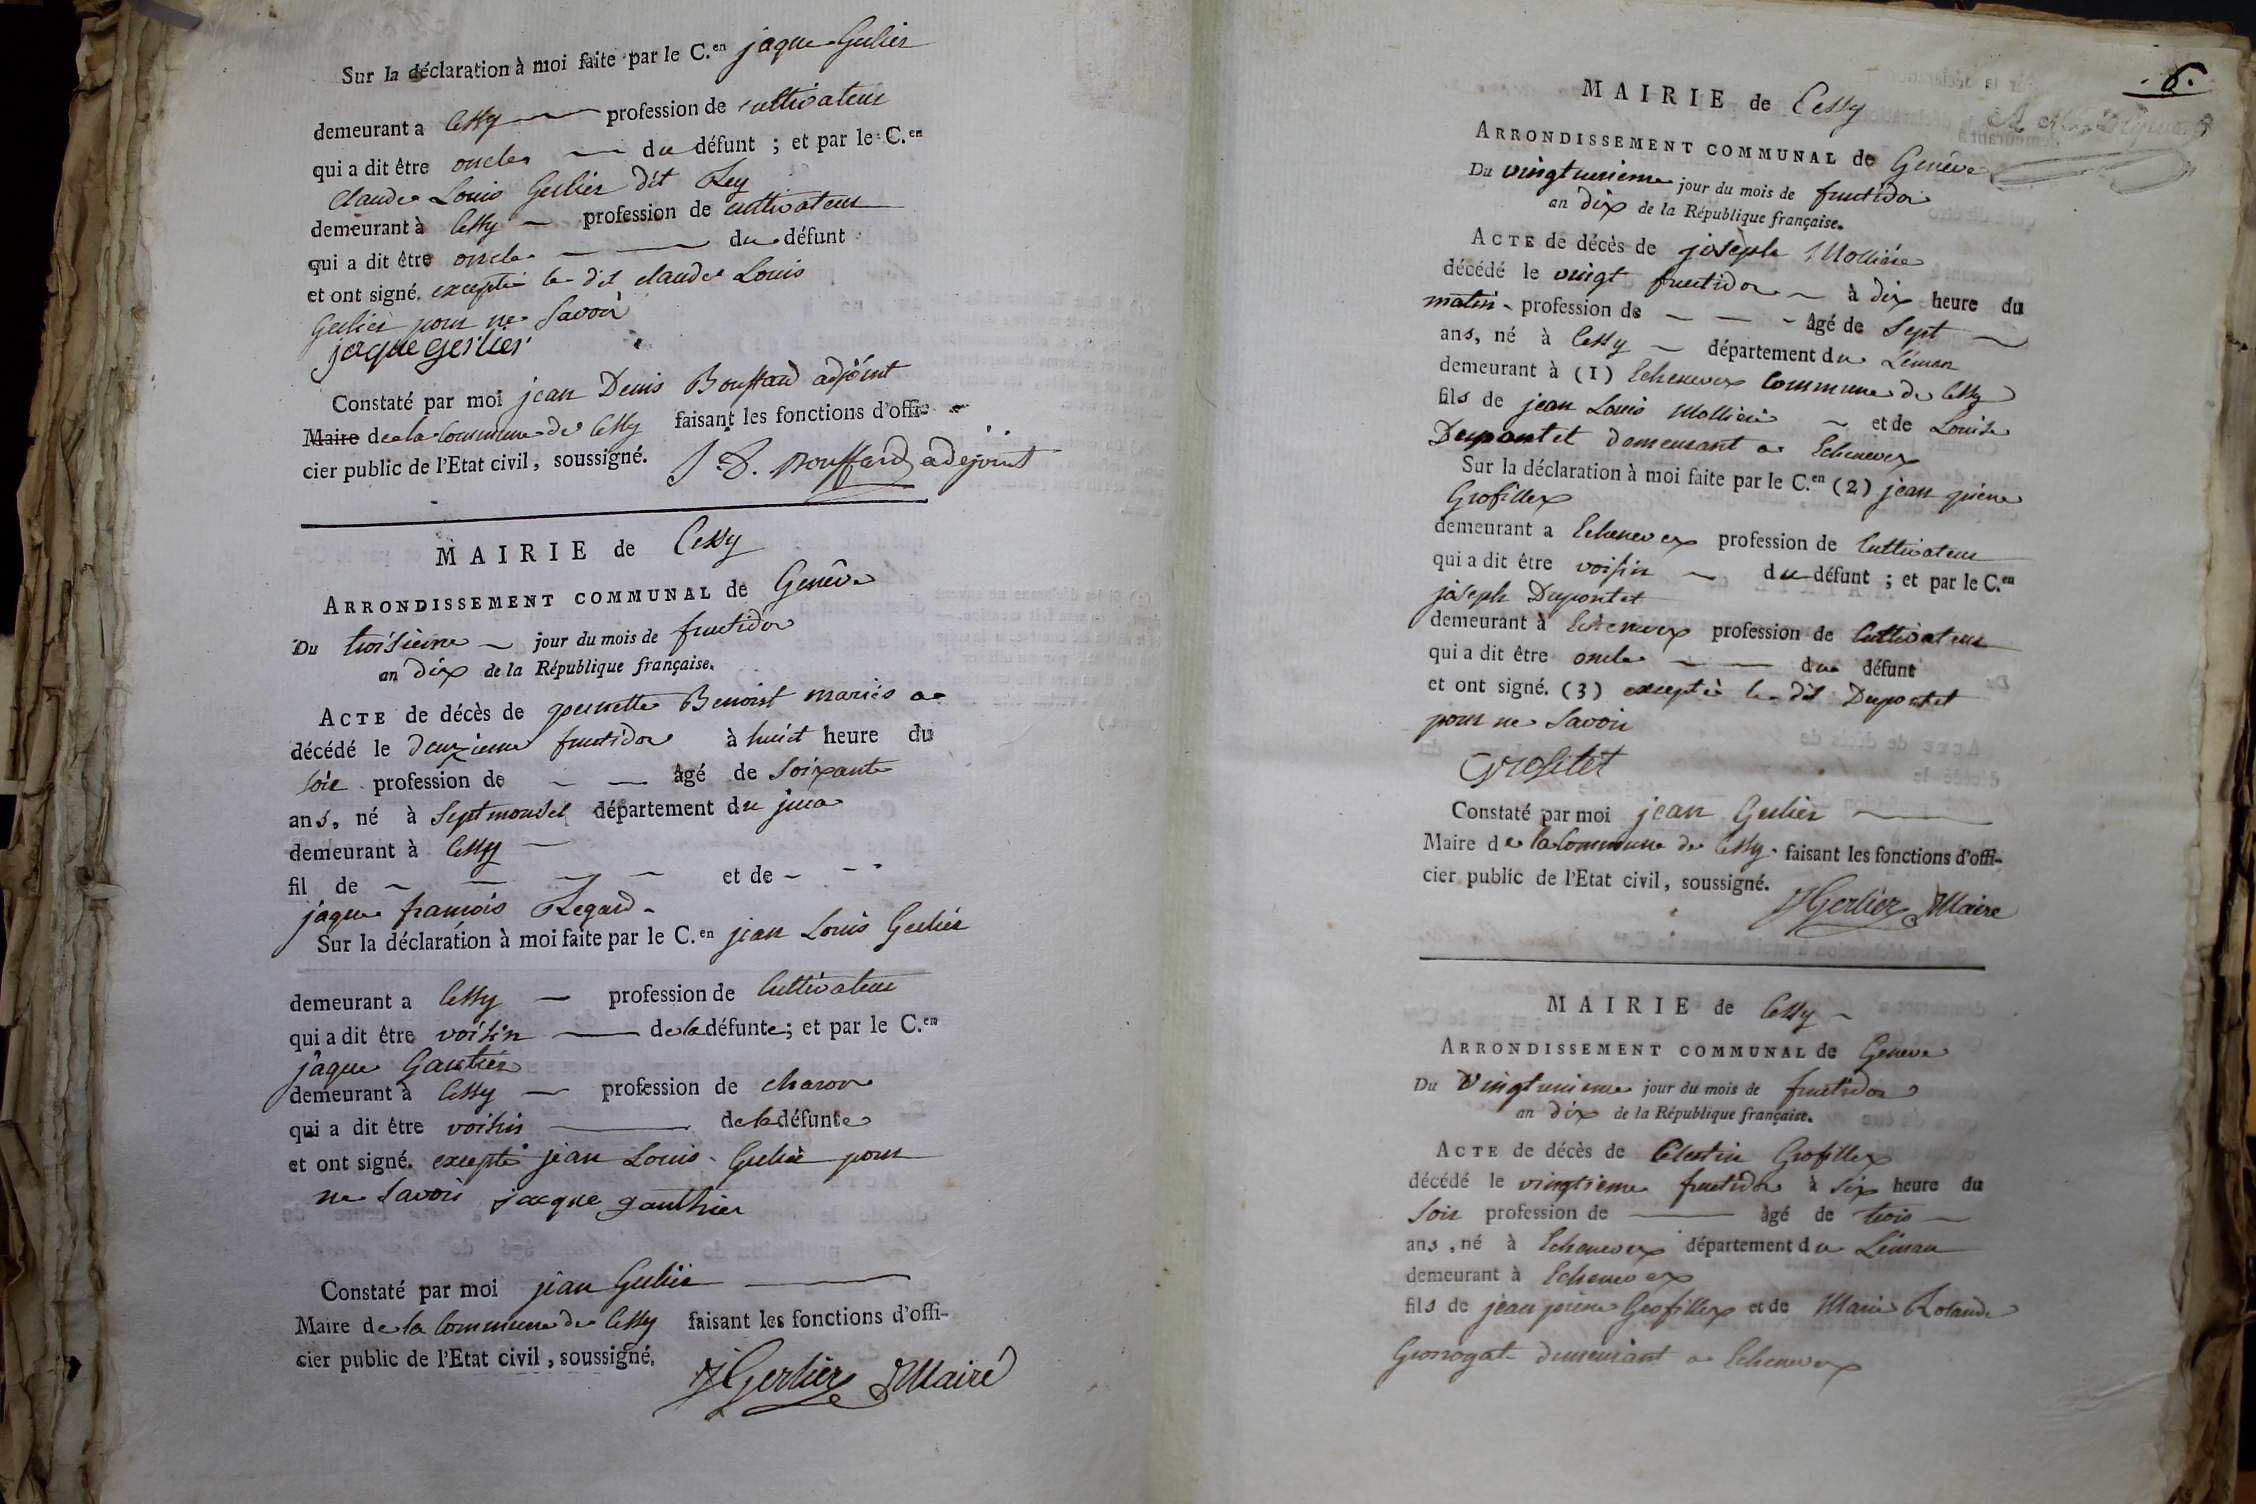 Sur la déclaration à moi faite par le C.en jaque Gerlier
demeurant a Cessy profession de cultivateur
qui a dit être oncle du défunt ; et par le C.en
Claude Louis Gerlier dit Rey
demeurant à Cessy profession de cultivateur
qui a dit être oncle du défunt
et ont signé. excepté le dit claude Louis
Gerlier pour ne Savoir
jaque gerlier
Constaté par moi jean Denis Bouffard adjoint
Maire de la Commune de Cessy faisant les fonctions d'offi-
cier public de l'Etat civil, soussigné.
J. D. Bouffard adejoint
MAIRIE de Cessy
ARRONDISSEMENT COMMUNAL de Genêve
Du troisieme jour du mois de fructidor
an dix de la République française.
ACTE de décès de pernette Benoist mariés a
décédé le deuzieme fructidor à huit heure du
soir profession de âgé de Soixante
ans, né à Septmoncel département du jura
demeurant à Cessy
fil de et de
jaque francois Regard
Sur la déclaration à moi faite par le C.en jean Louis Gerlier
demeurant a Cessy profession de Cultivateur
qui a dit être voisin de la défunte ; et par le C.en
jaque Gautier
demeurant à Cessy profession de charon
qui a dit être voisin de la défunte
et ont signé. excepté jean Louis Gerlier pour
ne Savoir jacque gauthier
Constaté par moi jean Gerlier
Maire de la Commune de Cessy faisant les fonctions d'offi-
cier public de l'Etat civil, soussigné.
J Gerlier Maire
6.
MAIRIE de Cessy
ARRONDISSEMENT COMMUNAL de Genêve
Du vingtunieme jour du mois de fructidor
an dix de la République française.
ACTE de décès de joseph Molliere
décédé le vingt fructidor à dix heure du
matin profession de âgé de Sept
ans, né à Cessy département du Léman
demeurant à (1) Echenevex Commune de Cessy
fils de jean Louis Mollieri et de Louise
Dupontet demeurant a Echenevex
Sur la déclaration à moi faite par le C.en (2) jean pierre
Grofillex
demeurant a Echenevex profession de Cultivateur
qui a dit être voisin du défunt ; et par le C.en
joseph Dupontet
demeurant à Echenevex profession de Cultivateur
qui a dit être oncle du défunt
et ont signé. (3) excepté le dit Dupontet
pour ne Savoir
Constaté par moi jean Gerlier
Maire de la Commune de Cessy faisant les fonctions d'offi-
cier public de l'Etat civil, soussigné.
J Gerlier Maire
MAIRIE de Cessy
ARRONDISSEMENT COMMUNAL de Geneve
Du Vingtunieme jour du mois de fructidor
an dix de la République française.
ACTE de décès de Celestin Grofillex
décédé le vingtieme fructidor à six heure du
Soir profession de âgé de trois
ans, né à Echenevex département du Léman
demeurant à Echenevex
fils de jean pierre Grofillex et de Marie Rolande
Grossogat demeurant a Echenevex